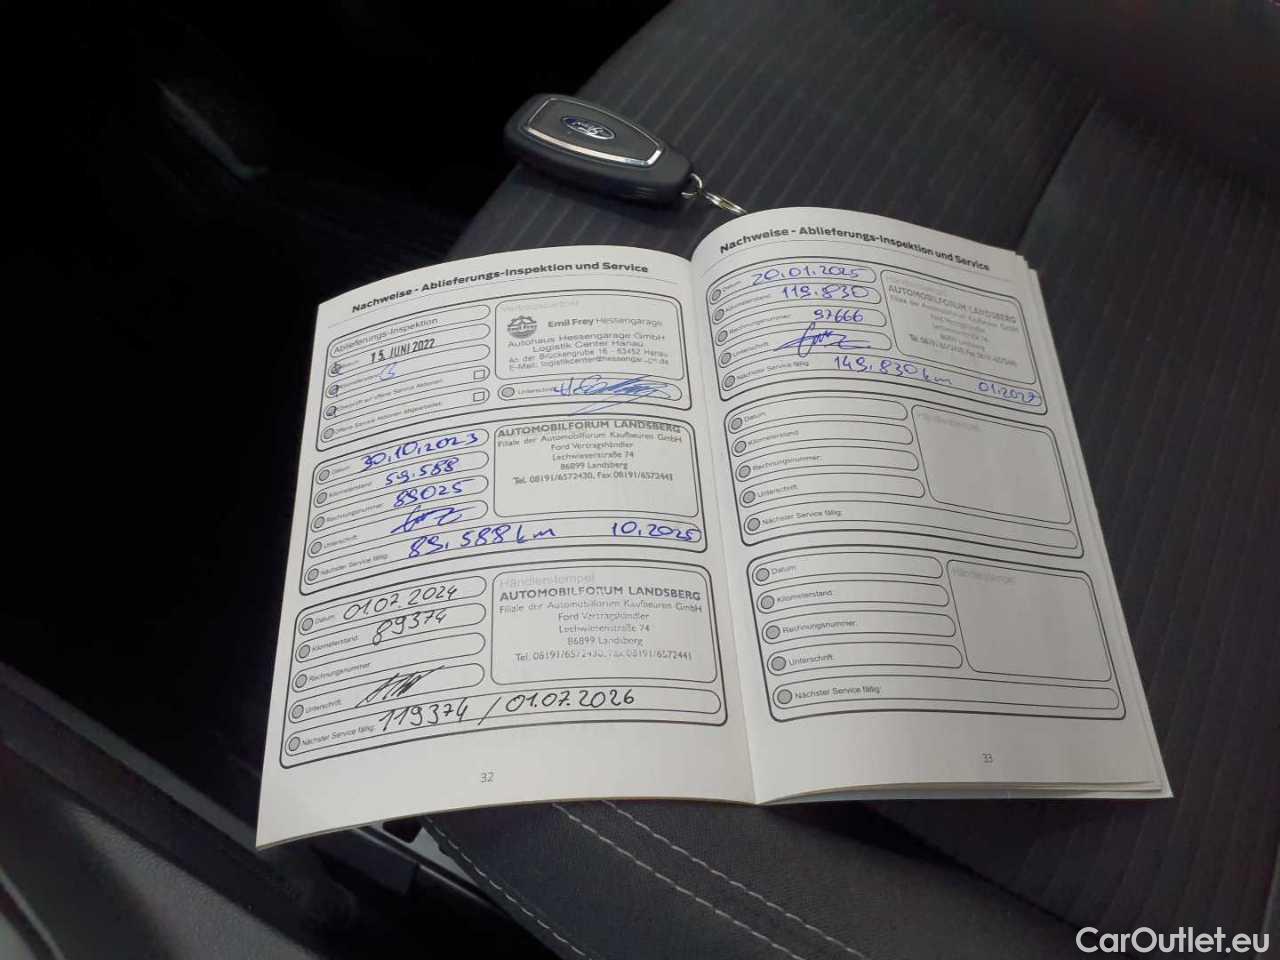 Ford
Nachweise - Ablieferungs-Inspektion und Service
Ablieferungs-Inspektion
Datum: 15. JUNI 2022
Offene Service Aktionen abgearbeitet:
Emil Frey Hessengarage
Autohaus Hessengarage GmbH
Logistik Center Hanau
An der Brückengrube 16 - 63452 Hanau
Unterschrift:
Datum: 30.10.2023
Kilometerstand: 59.588
Rechnungsnummer: 89025
Unterschrift:
Nächster Service fällig: 89.588 km 10.2025
AUTOMOBILFORUM LANDSBERG
Filiale der Automobilforum Kaufbeuren GmbH
Ford Vertragshändler
Lechwiesenstraße 74
86899 Landsberg
Tel. 08191/6572430, Fax 08191/6572441
Datum: 01.07.2024
Kilometerstand: 89374
Rechnungsnummer:
Unterschrift:
Nächster Service fällig: 119374 / 01.07.2026
Händlerstempel
AUTOMOBILFORUM LANDSBERG
Filiale der Automobilforum Kaufbeuren GmbH
Ford Vertragshändler
Lechwiesenstraße 74
86899 Landsberg
Tel. 08191/6572430, Fax 08191/6572441
32
Nachweise - Ablieferungs-Inspektion und Service
Datum: 20.01.2025
Kilometerstand: 119.830
Rechnungsnummer: 97666
Unterschrift:
Nächster Service fällig: 149.830 km 01.2027
AUTOMOBILFORUM LANDSBERG
Filiale der Automobilforum Kaufbeuren GmbH
Ford Vertragshändler
Lechwiesenstraße 74
86899 Landsberg
Datum:
Kilometerstand:
Rechnungsnummer:
Unterschrift:
Nächster Service fällig:
Händlerstempel
Datum:
Kilometerstand:
Rechnungsnummer:
Unterschrift:
Nächster Service fällig:
Händlerstempel
33
CarOutlet.eu